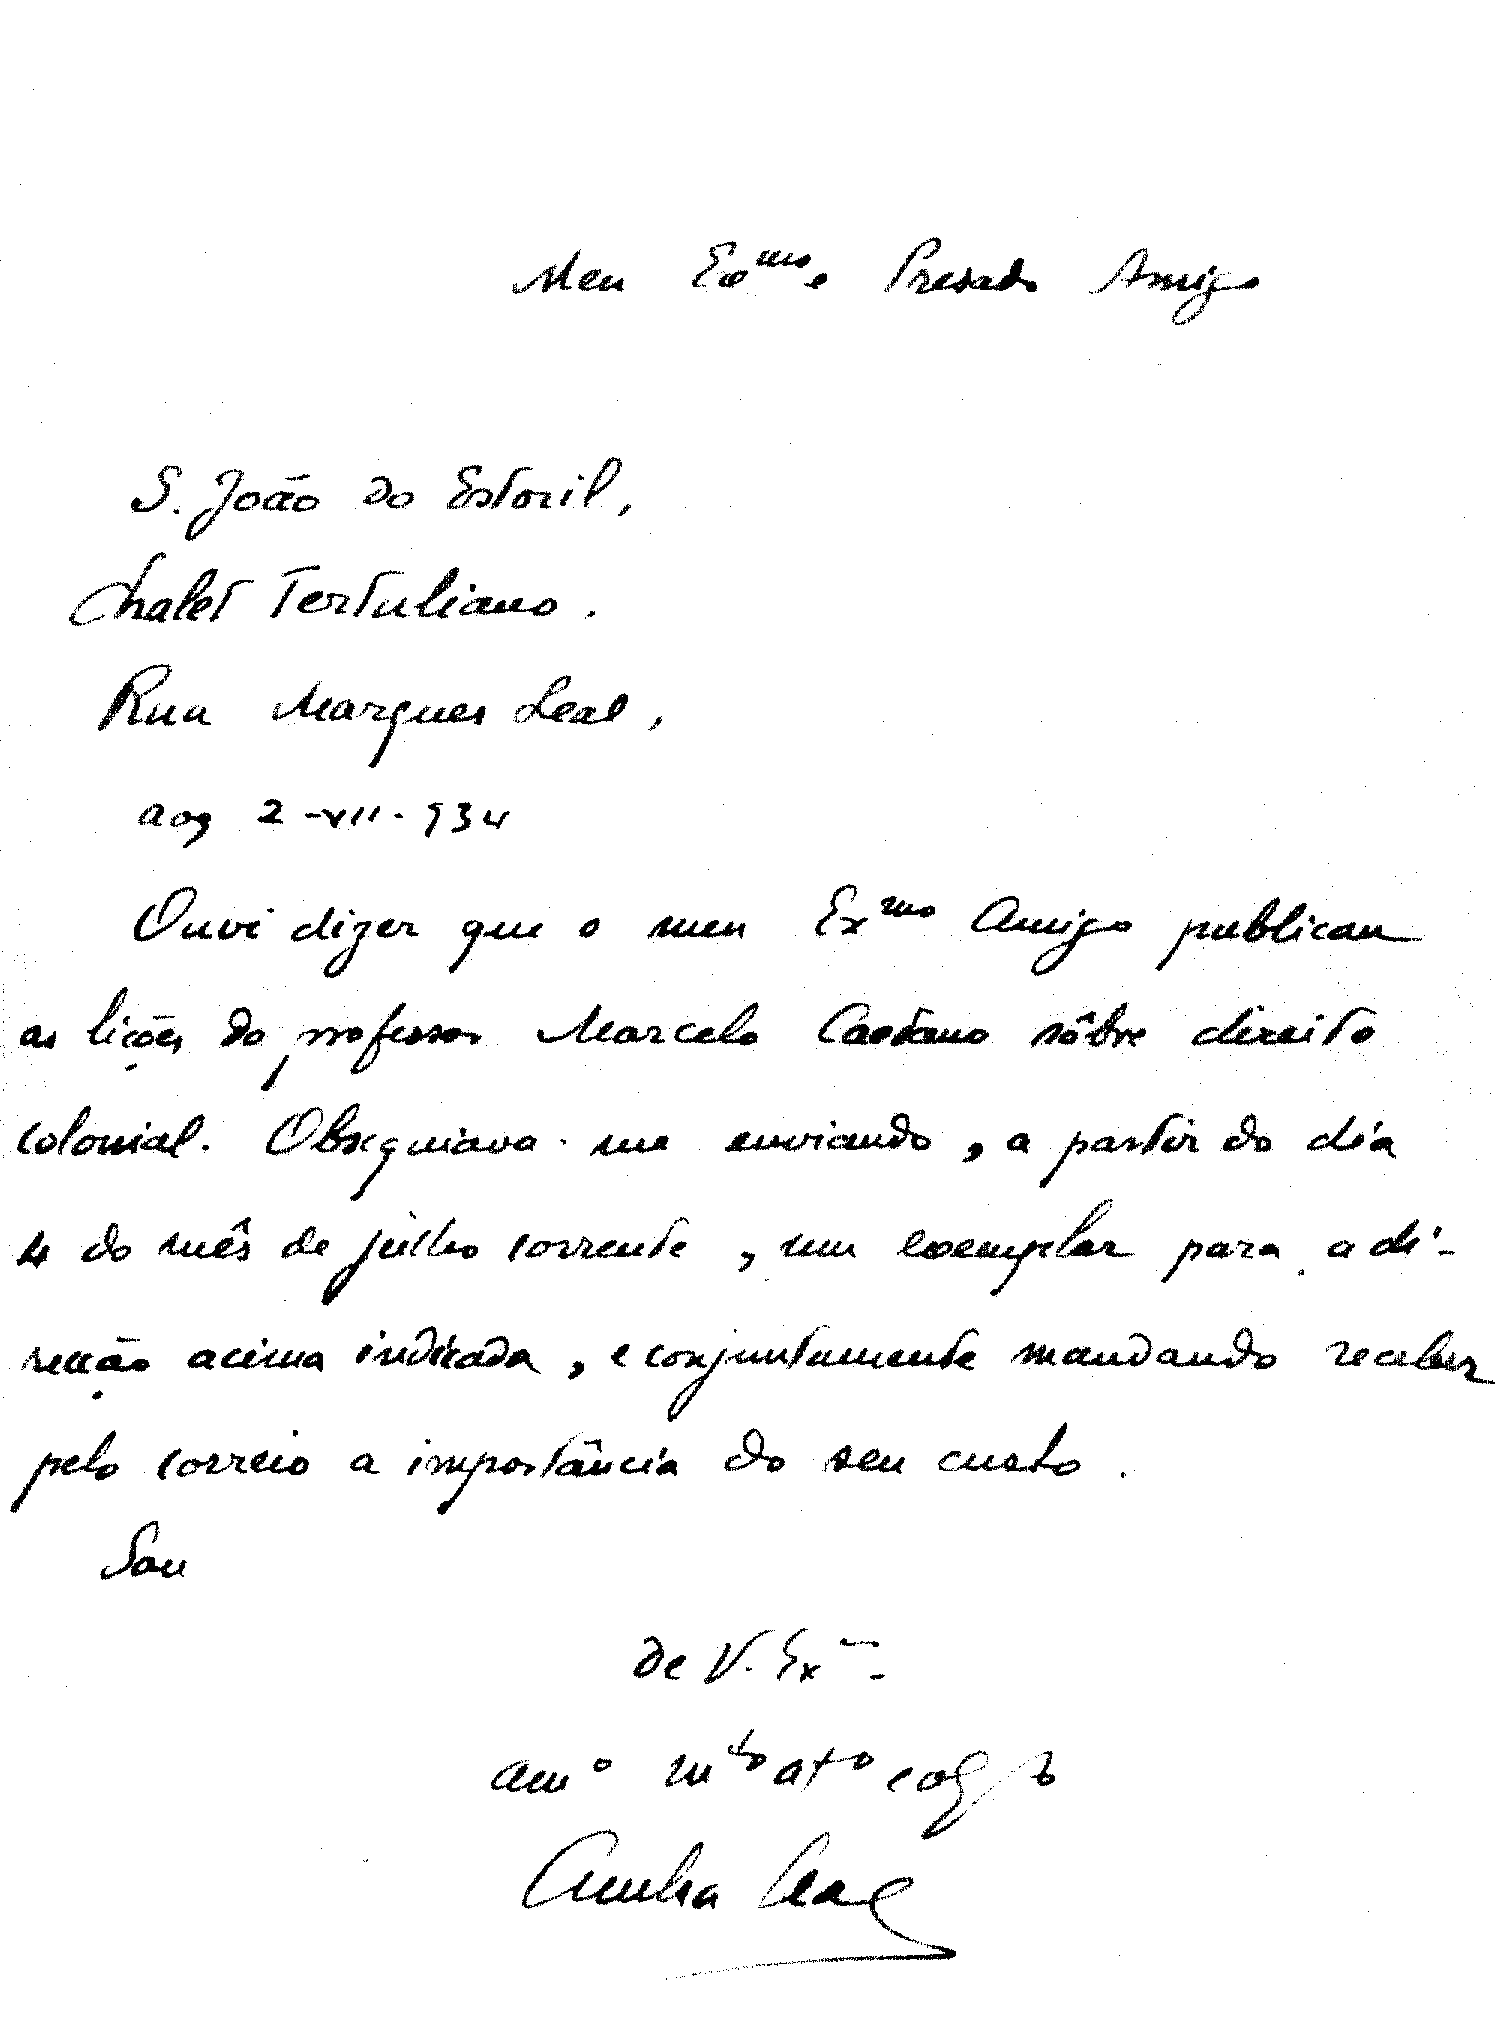 Meu Exmo e Presado Amigo
S. João do Estoril,
Chalet Tertuliano.
Rua Marques Leal,
aos 2-VII-934
Ouvi dizer que o meu Exmo Amigo publicou
as lições do professor Marcelo Caetano sôbre direito
colonial. Obsequiava-me enviando, a partir do dia
4 do mês de julho corrente, um exemplar para a di-
recção acima indicada, e conjuntamente mandando receber
pelo correio a importância do seu custo.
Sou
de V. Ex
amo mto ato
Cunha Leal